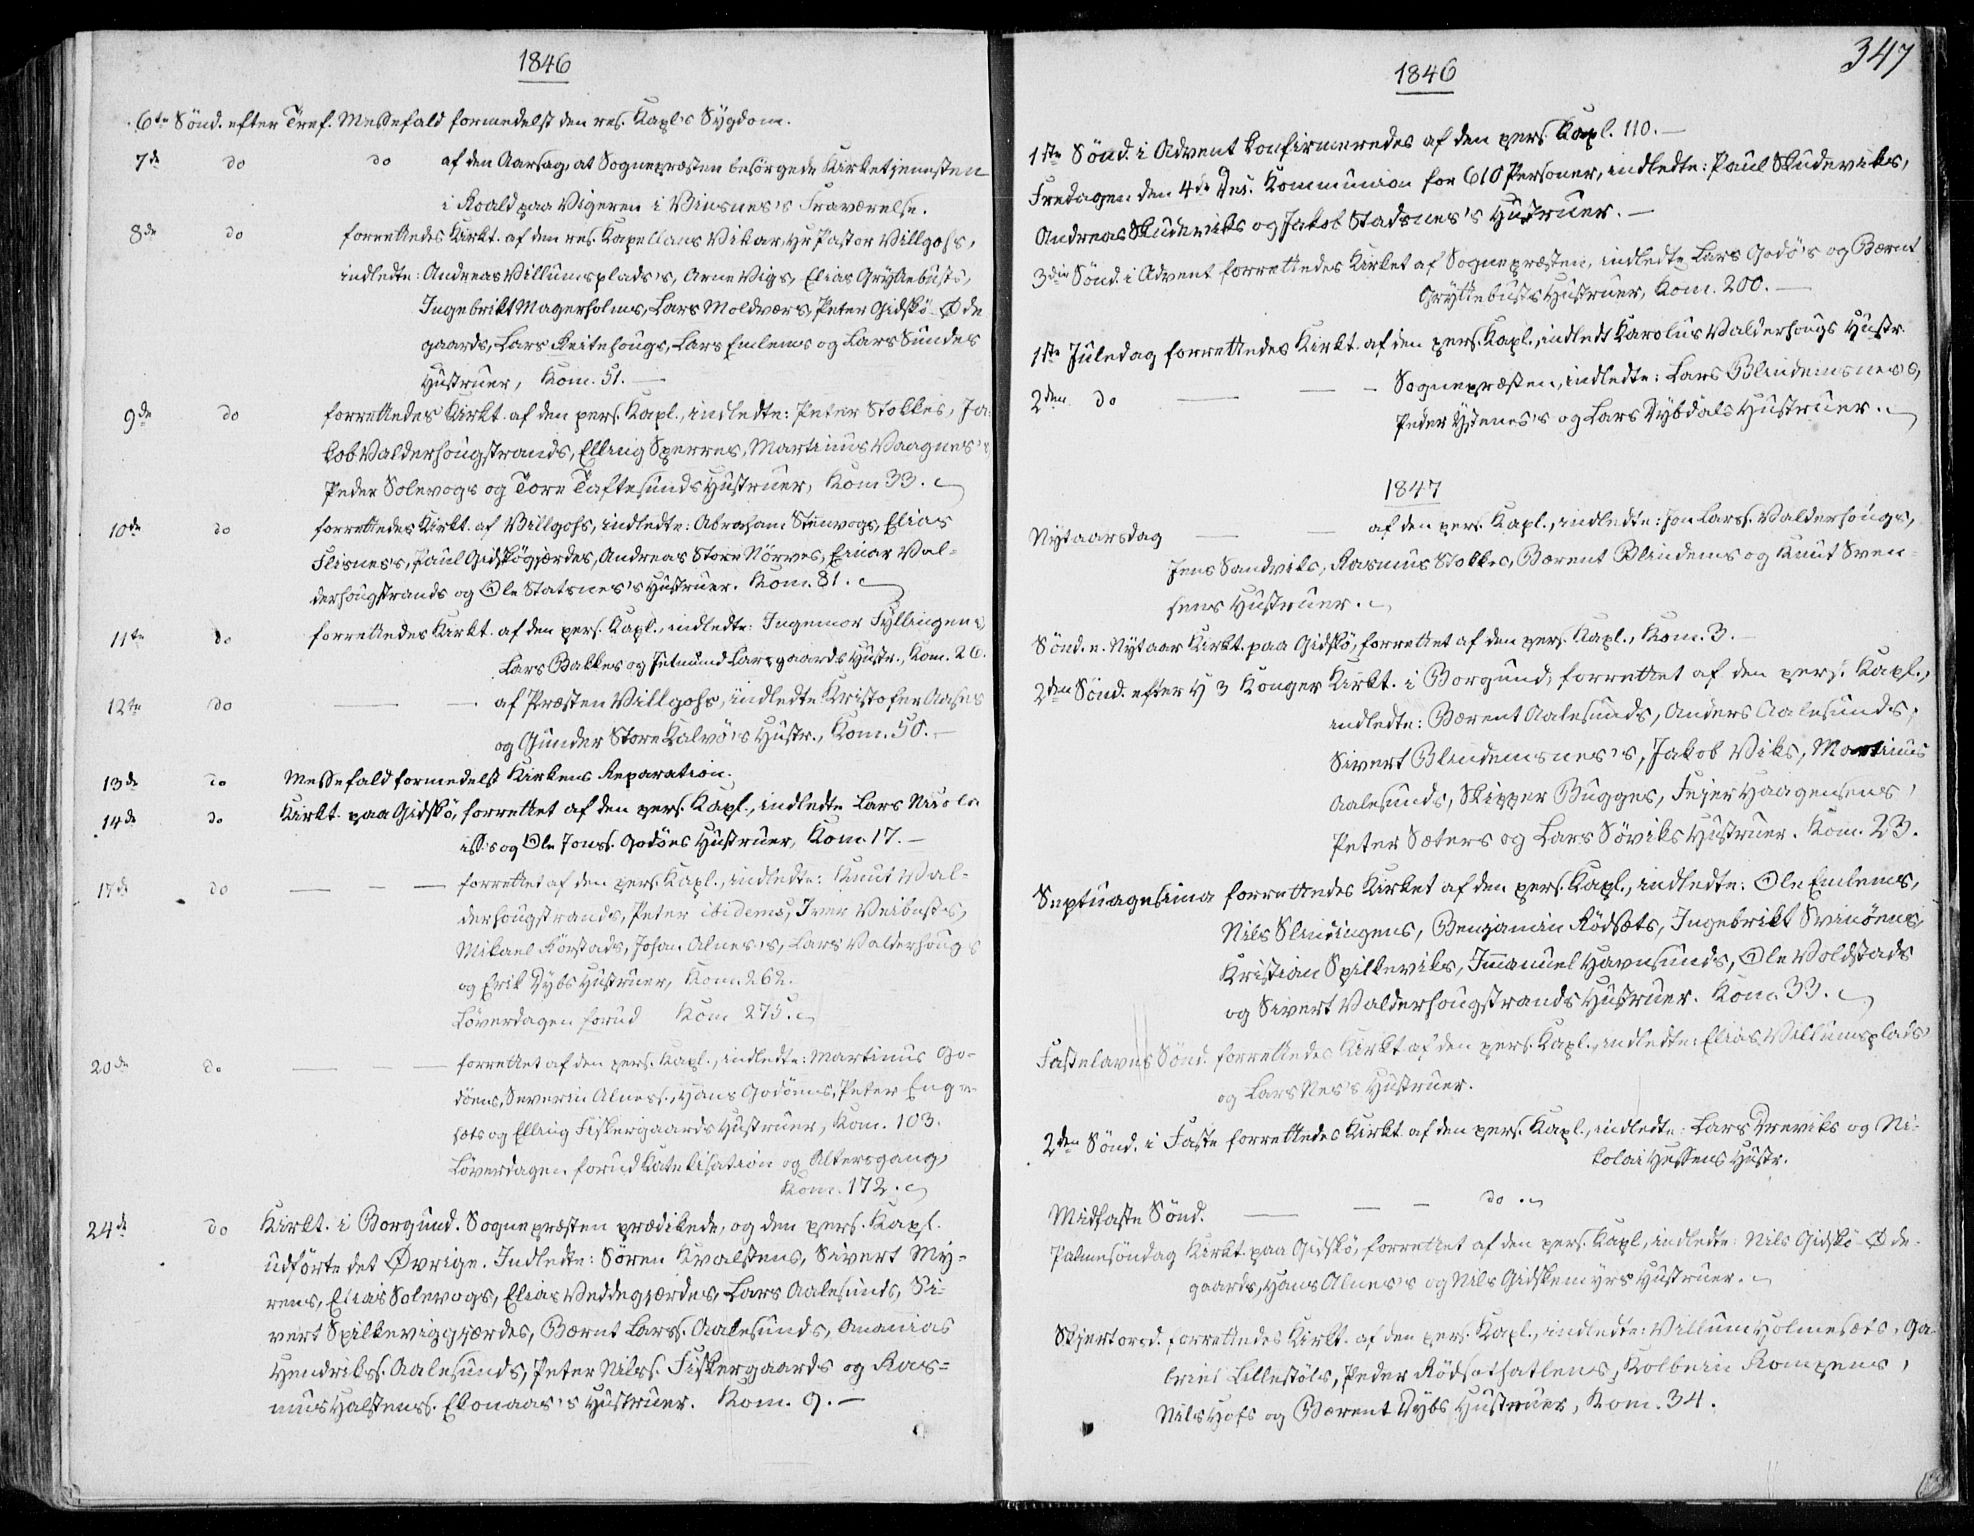 1846
6te Sönd. efter Tref. Messefald formedelst den res. Kapl's Sygdom.
7de do do af den Aarsag, at Sognepræsten besörgede Kirketjenesten
i Roald paa Vigeren i Vinsnes's Fraværelse.
8de do forrettedes Kirkt. af den res. Kapellans Vikar, Hr Pastor Villgohs,
indledte: Andreas Villumsplads's, Arne Vigs, Elias Gryttebusts,
Ingebrikt Magerholms, Lars Moldværs, Peter Gidskö Øde
gaards, Lars Reitehougs, Lars Emlems og Lars Sundes
Hustruer, Kom. 51. —
9de do forrettedes Kirkt. af den pers. Kapl., indledte: Peter Stokkes, Ja-
kob Valderhougstrands, Elling Sperres, Martinus Vaagnes's,
Peder Solevogs og Tore Taftesunds Hustruer, Kom 33.
10de do forrettedes Kirkt. af Villgohs, indledte: Abraham Stenvogs, Elias
Flisnes's, Paul Gidskögjærdes, Andreas Store Nörves, Einar Val-
derhougstrands og Ole Statsnes's Hustruer. Kom. 81.
11te do forrettedes Kirkt. af den pers. Kapl., indledte: Ingemor Fyllingens,
Lars Bakkes og Jetmund Larsgaards Hustr., Kom. 26.
12te do — — af Præsten Villgohs, indledte Kristofer Aases
og Gunder Store Kalvö's Hustr., Kom. 50. —
13de do Messefald formedelst Kirkens Reparation.
14de do Kirkt. paa Gidskö, forrettet af den pers. Kapl., indledte Lars Nicola
iss's og Ole Jonss. Godöes Hustruer, Kom. 17. —
17de do — — — forrettet af den pers. Kapl., indledte: Knut Val-
derhougstrands, Peter ibidems, Iver Veibusts,
Mikael Hörstads, Johan Alnes's, Lars Valderhougs
og Erik Dybs Hustruer, Kom. 262.
Löverdagen forud Kom 275.
20de do — — — forrettet af den pers. Kapl., indledte: Martinus Go-
döens, Severin Alness., Hans Godöens, Peter Enge
sæts og Elling Fiskergaards Hustruer, Kom. 103.
Löverdagen forud Katekisation og Altergang,
Kom. 172.
24de do Kirkt. i Borgund. Sognepræsten prædikede, og den pers. Kapl.
udförte det Øvrige. Indledte: Sören Kvalstens, Sivert My-
rens, Elias Solevogs, Elias Veddegjærdes, Lars Aalesunds, Si-
vert Spilkeviggjærdes, Bærnt Larss. Aalesunds, Ananias
Hendrikss. Aalesunds, Peter Nilss. Fiskergaards og Ras-
mus Halstenss. Ekonaas's Hustruer. Kom. 9. —
347
1846
1ste Sönd. i Advent konfirmeredes af den pers. Kapl. 110. —
Fredagen den 4de Des. Kommunion for 610 Personer, indledte: Paul Skudeviks,
Andreas Skudeviks og Jakob Stadsnes's Hustruer. —
3die Sönd. i Advent forrettedes Kirket af Sognepræsten, indledte Lars Godö's og Bærnt
Gryttebusts Hustruer, Kom. 200. —
1ste Juledag forrettedes Kirkt. af den pers. Kapl., indledt Karolus Valderhougs Hustr.
2den do — — — Sognepræsten, indledte: Lars Blindemsnes's,
Peder Ystenes's og Lars Dybdals Hustruer.
1847
Nytaarsdag — — af den pers. Kapl., indledte: Jon Larss. Valderhougs,
Jens Sandviks, Rasmus Stokkes, Bærent Blindems og Knut Sven-
sens Hustruer.
Sönd. e. Nytaar Kirkt. paa Gidskö, forrettet af den pers. Kapl., Kom. 3. —
2den Sönd. efter H 3 Konger Kirkt. i Borgund, forrettet af den pers. Kapl.,
indledte: Bærent Aalesunds, Anders Aalesunds,
Sivert Blindemsnes's, Jakob Viks, Martinus
Aalesunds, Skipper Bugges, Fejer Haagensens,
Peter Sæters og Lars Söviks Hustruer. Kom. 23.
Septuagesima forrettedes Kirket af den pers. Kapl., indledte: Ole Emlems,
Nils Slinningens, Benjamin Rödsæts, Ingebrikt Svinöens,
Kristian Spilkeviks, Immanuel Havnsunds, Ole Voldstads
og Sivert Valderhougstrands Hustruer. Kom. 33.
Fastelavns Sönd. forrettedes Kirkt. af den pers. Kapl., indledte: Elias Villumsplads
og Lars Nes's Hustruer.
2den Sönd. i Faste forrettedes Kirkt. af den pers. Kapl., indledte: Lars Dreviks og Ni-
kolai Hessens Hustr.
Midfaste Sönd. — — — do.
Palmesöndag Kirkt. paa Gidskö, forrettet af den pers. Kapl, indledte: Nils Gidskö Øde-
gaards, Hans Alnes's og Nils Gidskemyrs Hustruer.
Skjertorsd. forrettedes Kirkt. af den pers. Kapl., indledte: Villum Holmesæts, Ga-
briel Lillestöls, Peder Rödsethatlens, Kolbein Rompens,
Nils Hofs og Bærent Dybs Hustruer, Kom. 34.